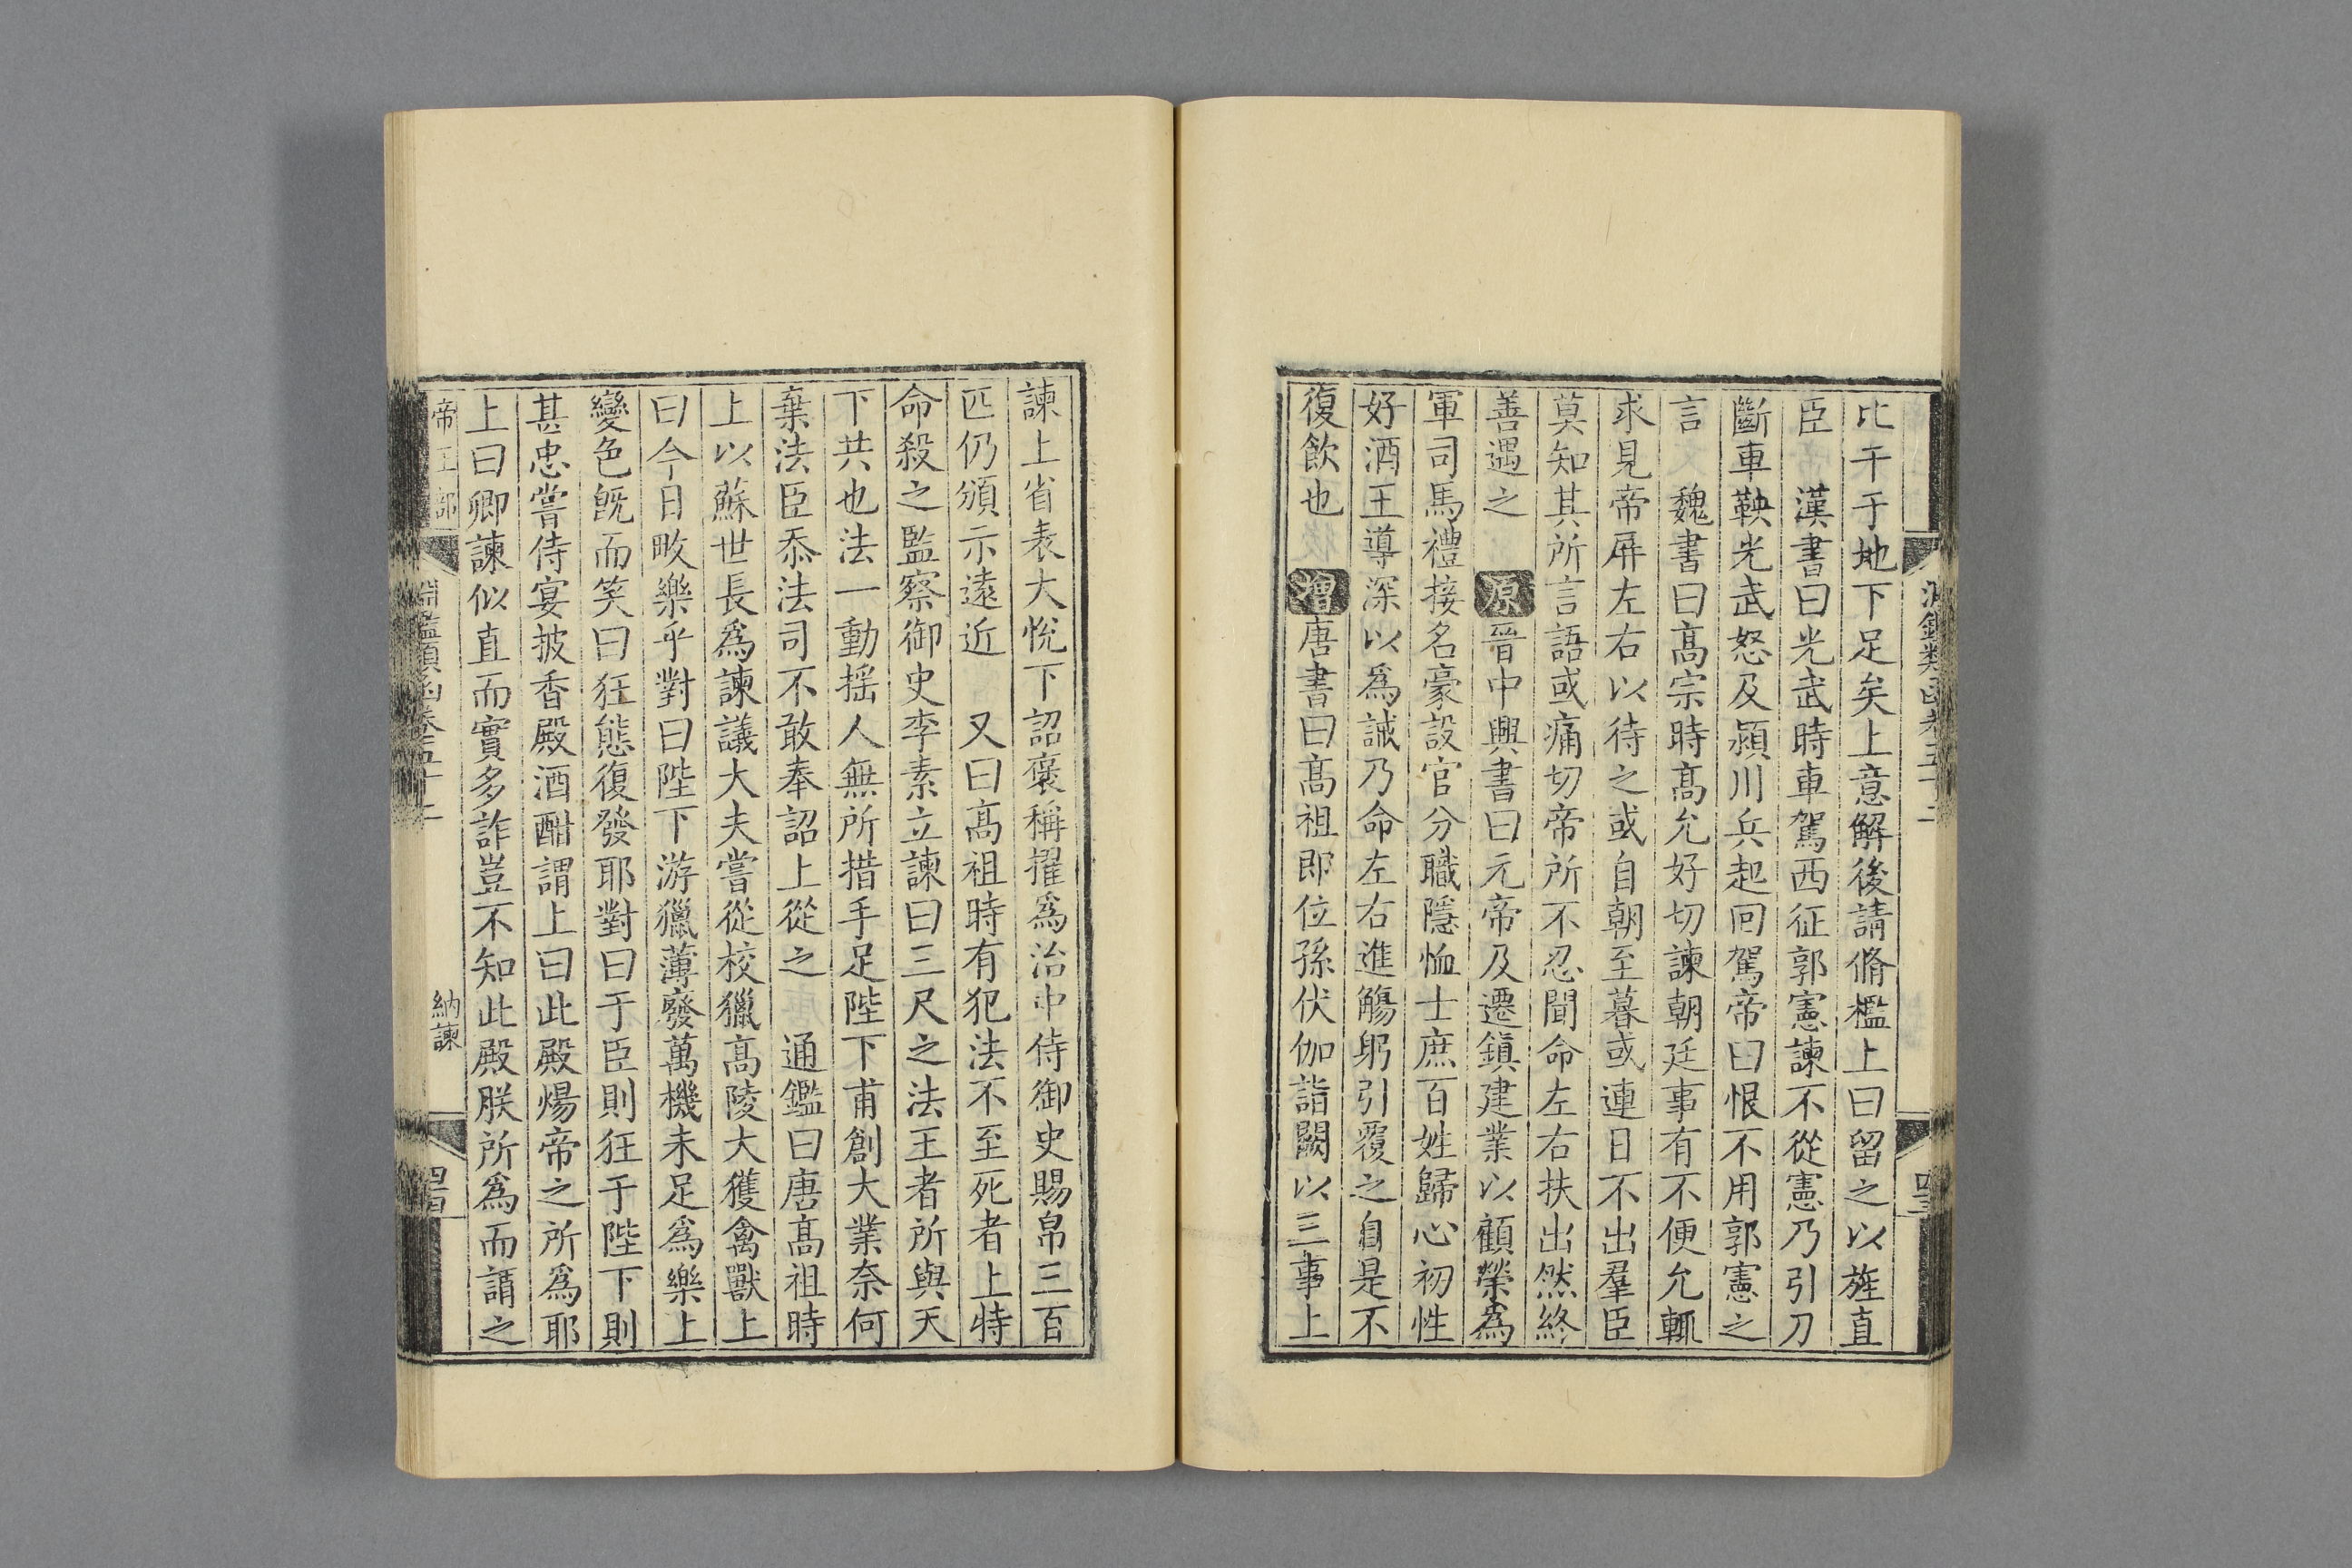 比干于地下足矣上意解後請脩檻上曰留之以旌直
臣　漢書曰光武時車駕西征郭憲諫不從憲乃引刀
斷車鞅光武怒及潁川兵起回駕帝曰恨不用郭憲之
言　魏書曰髙宗時髙允好切諫朝廷事有不便允輒
求見帝屏左右以待之或自朝至暮或連日不出羣臣
莫知其所言語或痛切帝所不忍聞命左右扶出然終
善遇之　原晉中興書曰元帝及遷鎮建業以顧榮為
軍司馬禮接名豪設官分職隱恤士庶百姓歸心初性
好酒王導深以爲誡乃命左右進觴躬引覆之自是不
復飲也　增唐書曰髙祖即位孫伏伽詣闕以三事上
諫上省表大悅下詔褒稱擢爲治中侍御史賜帛三百
匹仍頒示遠近　又曰髙祖時有犯法不至死者上特
命殺之監察御史李素立諫曰三尺之法王者所與天
下共也法一動揺人無所措手足陛下甫創大業奈何
棄法臣忝法司不敢奉詔上從之　通鑑曰唐髙祖時
上以蘇世長爲諫議大夫嘗從校獵髙陵大獲禽獸上
曰今日畋樂乎對曰陛下游獵薄廢萬機未足爲樂上
變色旣而笑曰狂態復發耶對曰于臣則狂于陛下則
甚忠嘗侍宴披香殿酒酣謂上曰此殿煬帝之所爲耶
上曰卿諫似直而實多詐豈不知此殿朕所爲而謂之
帝王部
淵鑑類函卷五十二
納諫